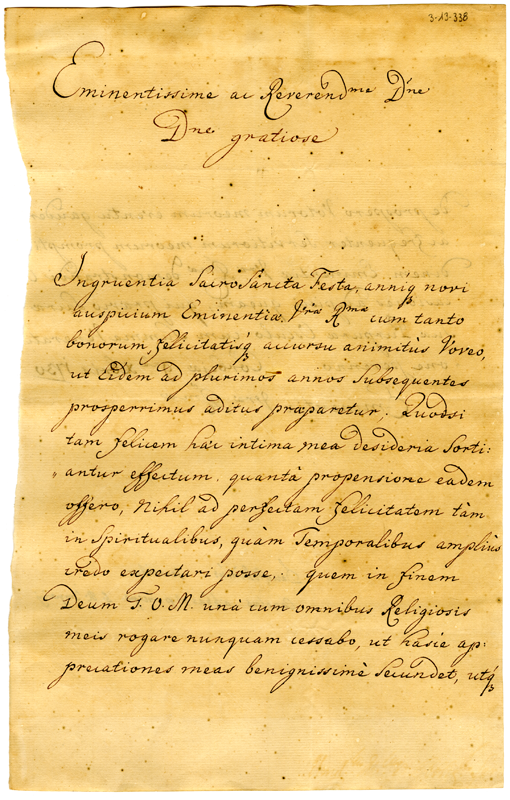 3-13-338
Eminentissime ac Reverendme Dne
Dne gratiose
Ingruentia SacroSancta Festa, anniq3 novi
auspicium Eminentiæ Vræ Rmæ cum tanto
bonorum, felicitatisq3 accursu animitùs Voveo,
ut Eidem ad plurimos annos Subsequentes
prosperrimus aditus præparetur. Quodsi
tam felicem hæc intima mea desideria Sorti:
„antur effectum, quantâ propensione eadem
offero, Nihil ad perfectam felicitatem tàm
in Spiritualibus, quàm Temporalibus ampliùs
credo expectari posse, quem in finem
Deum T. O. M. unà cum omnibus Religiosis
meis rogare nunquam cessabo, ut hasce ap:
precationes meas benignissimè Secundet, utq3